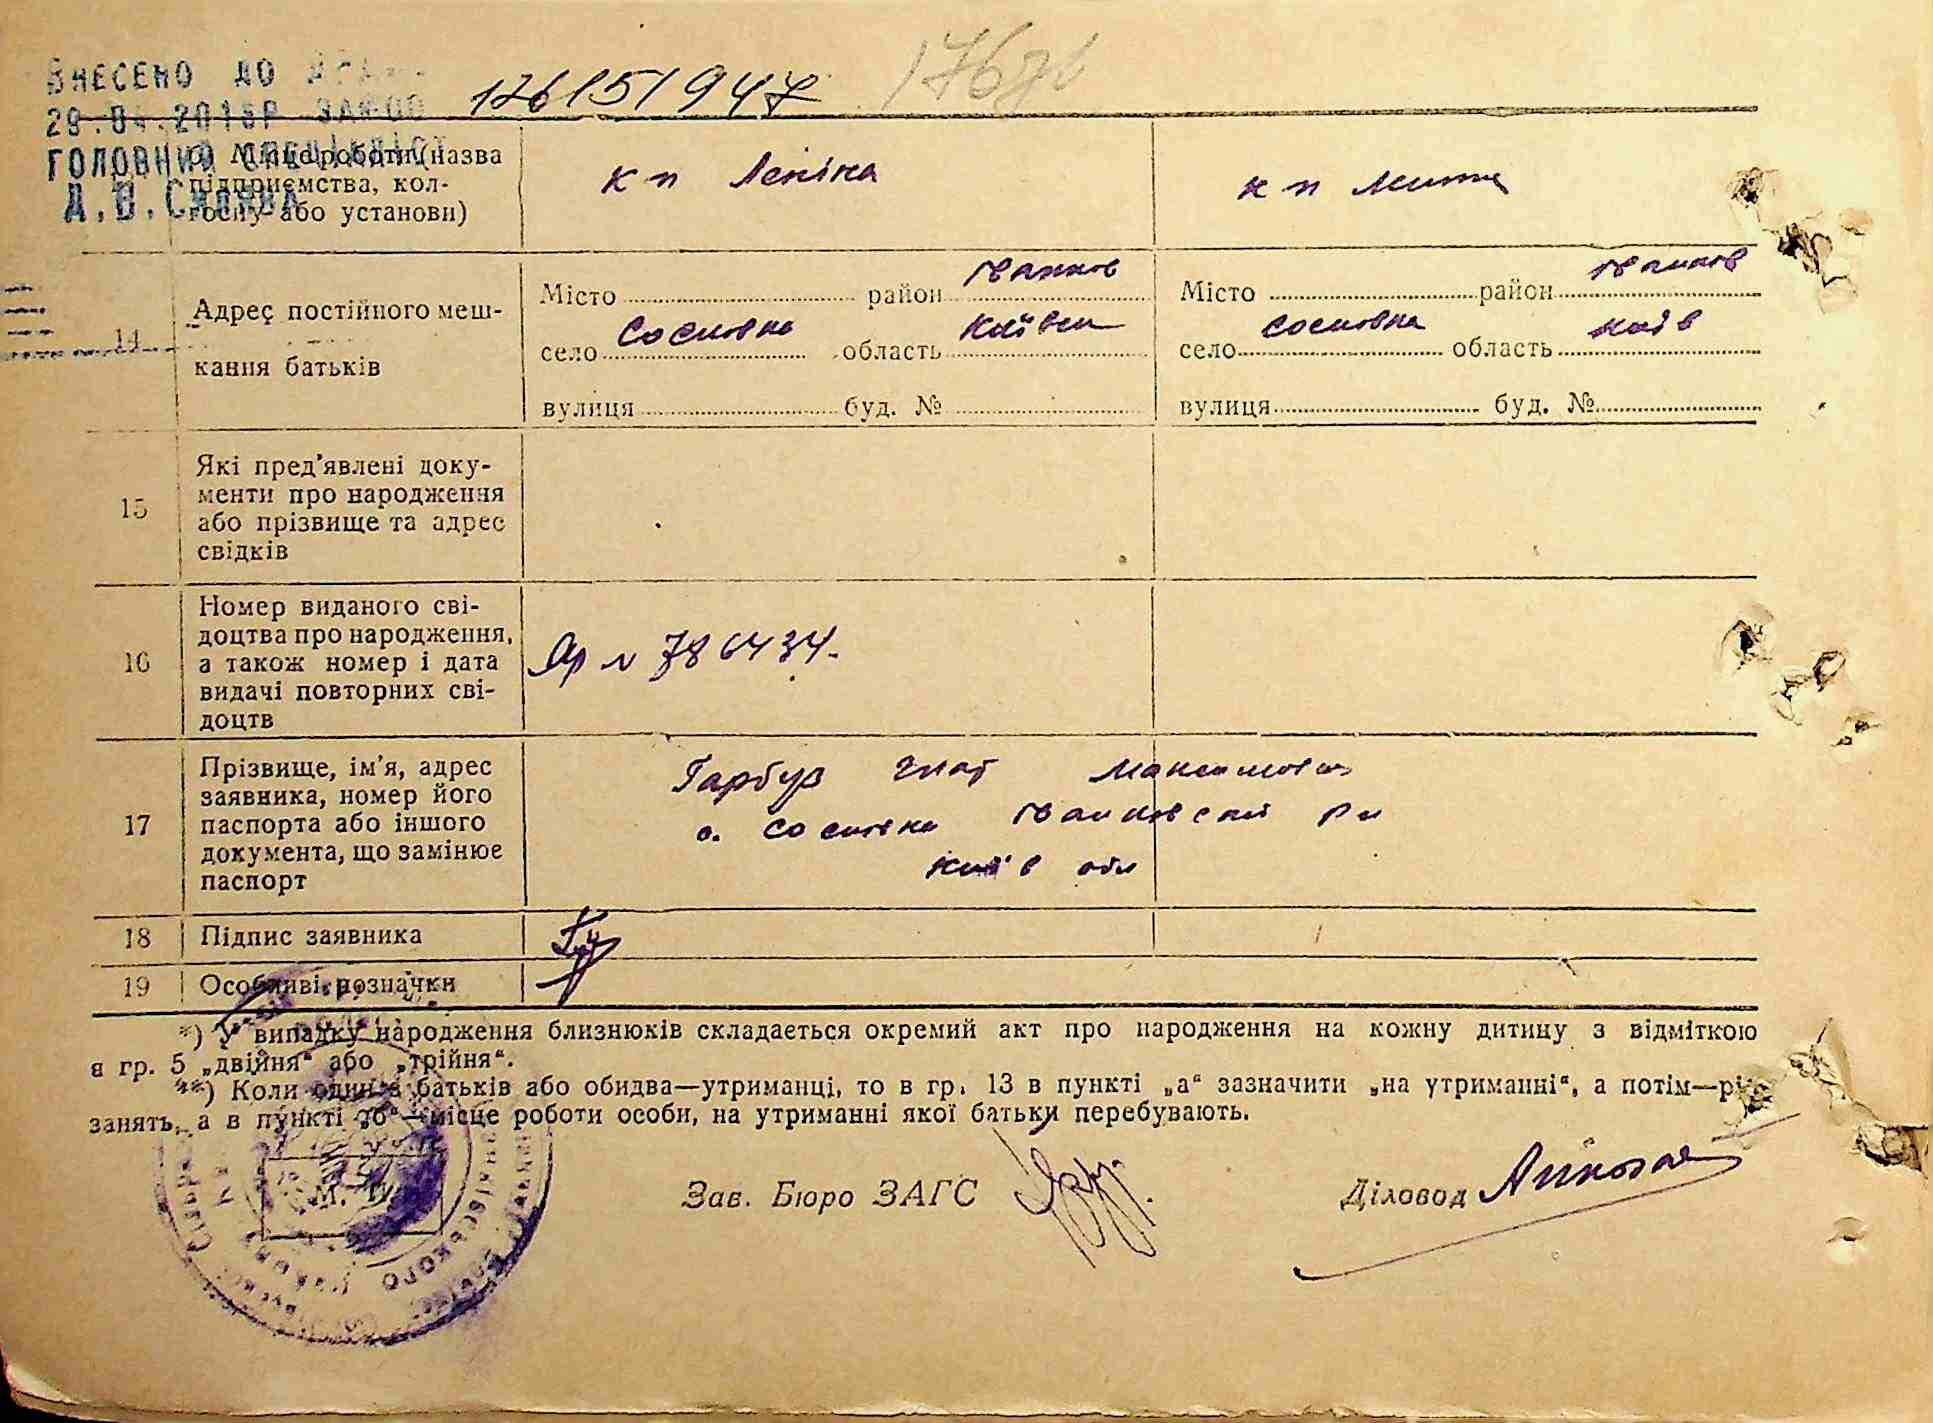 ВНЕСЕНО ДО
17615/947
ГОЛОВНИЙ СПЕЦІАЛІСТ
б) Місце роботи (назва
підприємства, кол-
госпу або установи)
к п Леніна
к п
14
Адрес постійного меш-
кання батьків
Місто район Іванков
село Сосновка область Київск
вулиця буд. №
Місто район Іванков
село Сосновка область Київ
вулиця буд. №
15
Які пред'явлені доку-
менти про народження
або прізвище та адрес
свідків
16
Номер виданого сві-
доцтва про народження,
а також номер і дата
видачі повторних сві-
доцтв
№ 786434.
17
Прізвище, ім'я, адрес
заявника, номер його
паспорта або іншого
документа, що замінює
паспорт
Гарбуз Гнат Максимович
с. Сосновка Іванковский Рн
Київ обл
18
Підпис заявника
19
Особливі розначки
*) У випадку народження близнюків складається окремий акт про народження на кожну дитину з відміткою
в гр. 5 „двійня“ або „трійня“.
**) Коли один з батьків або обидва—утриманці, то в гр. 13 в пункті „а“ зазначити „на утриманні“, а потім—рід
занять, а в пункті „б“—місце роботи особи, на утриманні якої батьки перебувають.
М. П.
Зав. Бюро ЗАГС
Діловод